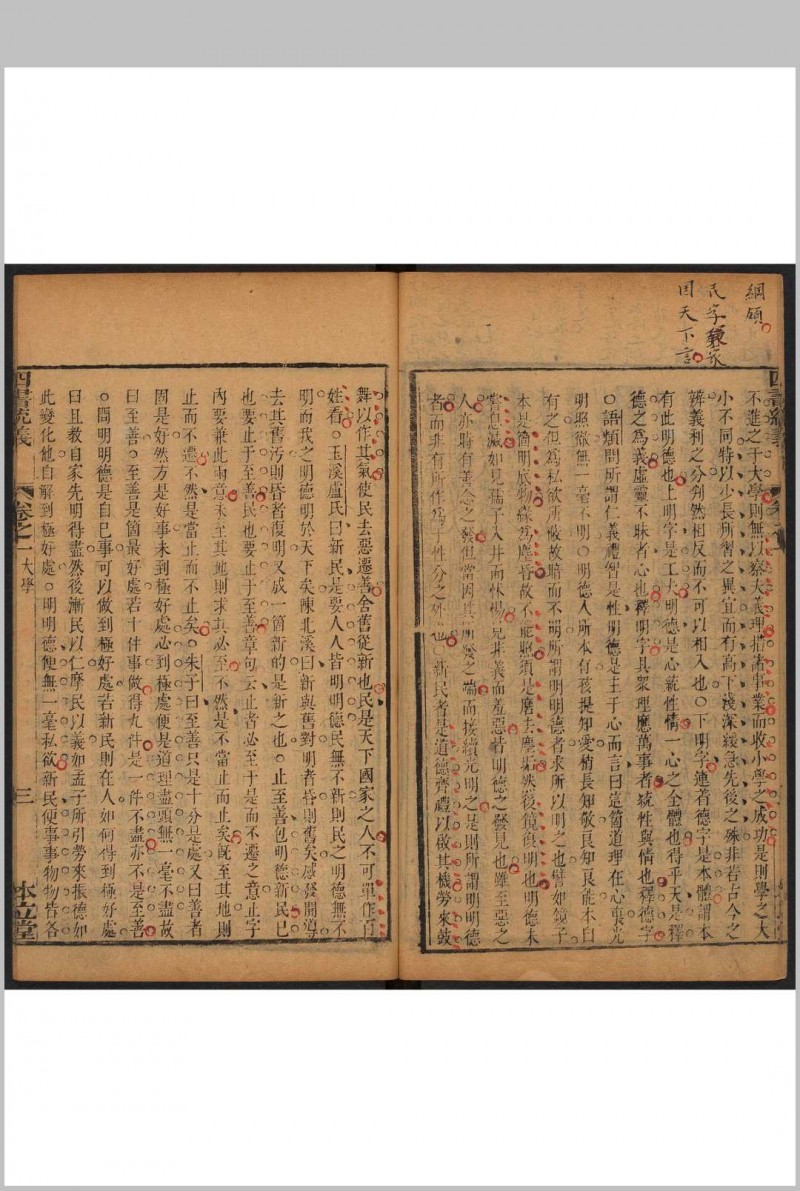 綱領
民字緊緊
因天下言
不進之于大學則無以察夫義理措諸事業而收小學之成功是則學之大
小不同特以少長所習之異宜而有高下淺深緩急先後之殊非若古今之
辨義利之分判然相反而不可以相入也○下明字連著德字是本體謂本
有此明德也上明字是工夫明德是心統性情一心之全體也得乎天是釋
德之為義虛靈不昧者心也釋明字具衆理應萬事者統性與情也釋德字
○語類問所謂仁義禮智是性明德是主于心而言曰這箇道理在心裏光
明照徹無一毫不明○明德人所本有孩提知愛稍長知敬良知良能本自
有之但為私欲所蔽故暗而不明所謂明明德者求所以明之也譬如鏡子
本是箇明底物緣為塵昏故不能照須是磨去塵垢然後鏡復明也明德未
嘗息滅如見孺子入井而怵惕見非義而羞惡皆明德之發見也雖至惡之
人亦時有善念之發但當因其所發之端而接續光明之是則所謂明明德
者而非有所作為于性分之外也○新民者是道德齊禮以啟其機勞來鼓
舞以作其氣使民去惡遷善舍舊從新也民是天下國家之人不可單作百
姓看○玉溪盧氏曰新民是要人人皆明明德民無不新則民之明德無不
明而我之明德明於天下矣陳北溪曰新與舊對明者昏則舊矣感發開導
去其舊汚則昏者復明又成一箇新的是新之也○止至善包明德新民已
也要止于至善民也要止于至善章句云止者必至于是而不遷之意止字
內要兼此兩意未至其地則求其必至不然是不當止而止矣既至其地則
止而不遷不然是當止而不止矣○朱子曰至善只是十分是處又曰善者
固是好然方是好事未到極好處必到極處便是道理盡頭無一毫不盡故
曰至善○至善是箇最好處若十件事做得九件是一件不盡亦不是至善
○問明明德是自已事可以做到極好處若新民則在人如何得到極好處
曰且教自家先明得盡然後漸民以仁摩民以義如孟子所引勞來振德如
此變化他自解到極好處○明明德便無一毫私欲新民便事事物物皆各
四書統義
卷之一
大學
三
本立堂